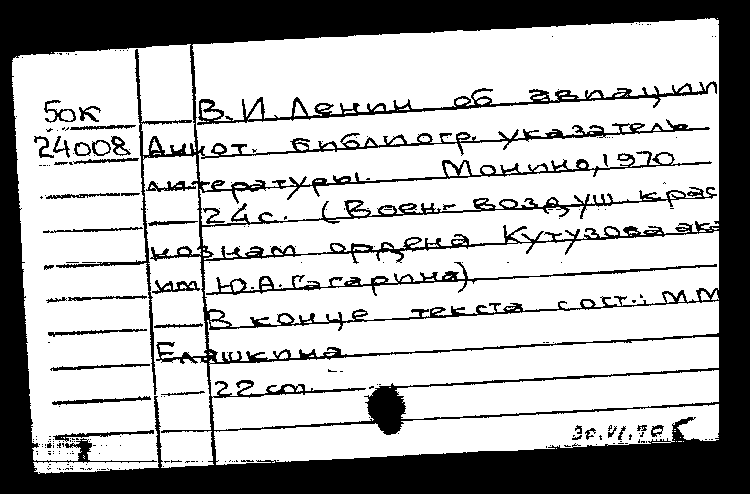 50к В.И.Ленин об авиации
24008 Аннот. библиогр. указатель
литературы. Монино, 1970
24с. (Воен.-воздуш. крас
нознам ордена Кутузова ака
им Ю.А.Гагарина).
В конце текста сост.: М.М
Елашкина
22 cm.
30.VI.70